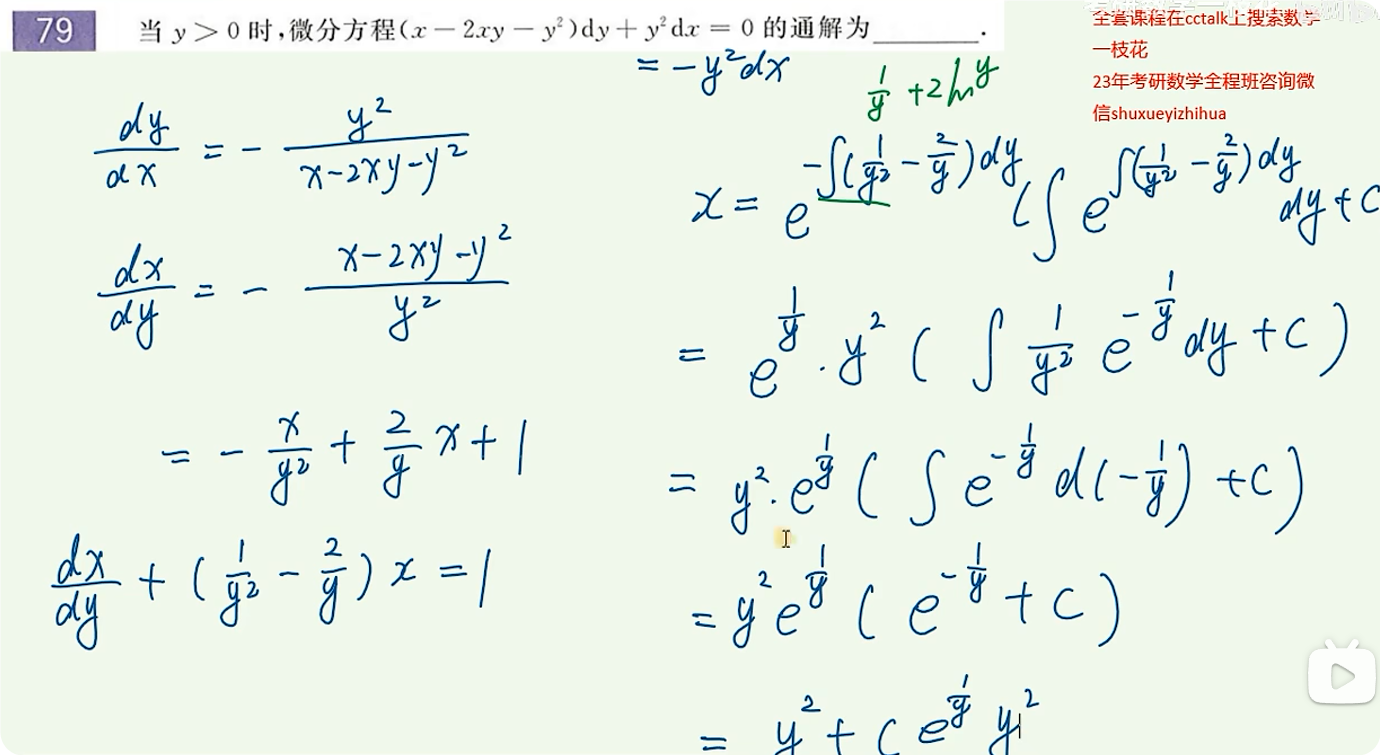 79 当 y > 0 时,微分方程(x − 2xy − y²)dy + y²dx = 0 的通解为________.
全套课程在cctalk上搜索数学
一枝花
23年考研数学全程班咨询微
信shuxueyizhihua
= −y²dx
1/y + 2ln y
dy/dx = − y²/(x−2xy−y²)
dx/dy = − (x−2xy−y²)/y²
= − x/y² + 2/y x + 1
dx/dy + (1/y² − 2/y) x = 1
x = e^(−∫(1/y² − 2/y)dy) (∫ e^(∫(1/y² − 2/y)dy) dy + C
= e^(1/y) · y² ( ∫ 1/y² e^(−1/y) dy + C )
= y² · e^(1/y) ( ∫ e^(−1/y) d(−1/y) + C )
= y² e^(1/y) ( e^(−1/y) + C )
= y² + C e^(1/y) y²